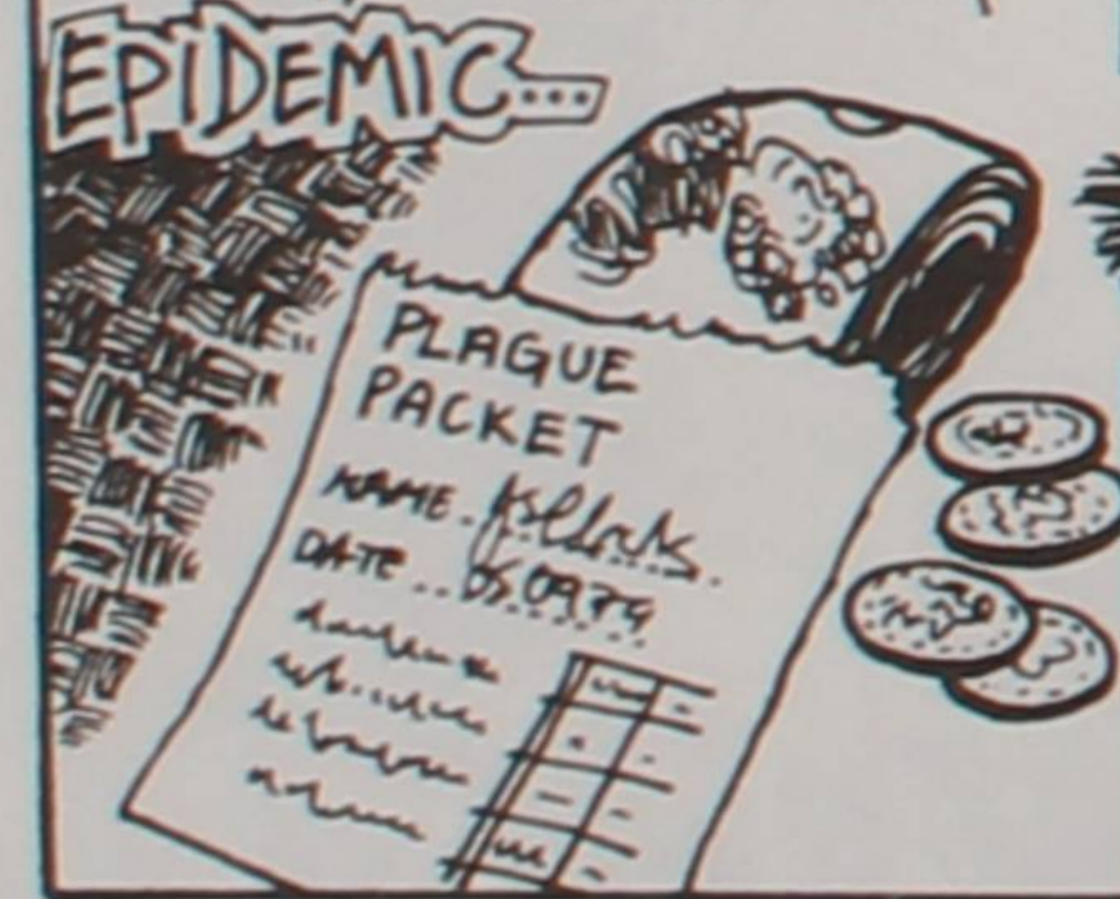 EPIDEMIC...
PLAGUE
PACKET
NAME.
DATE .. 05.09.79